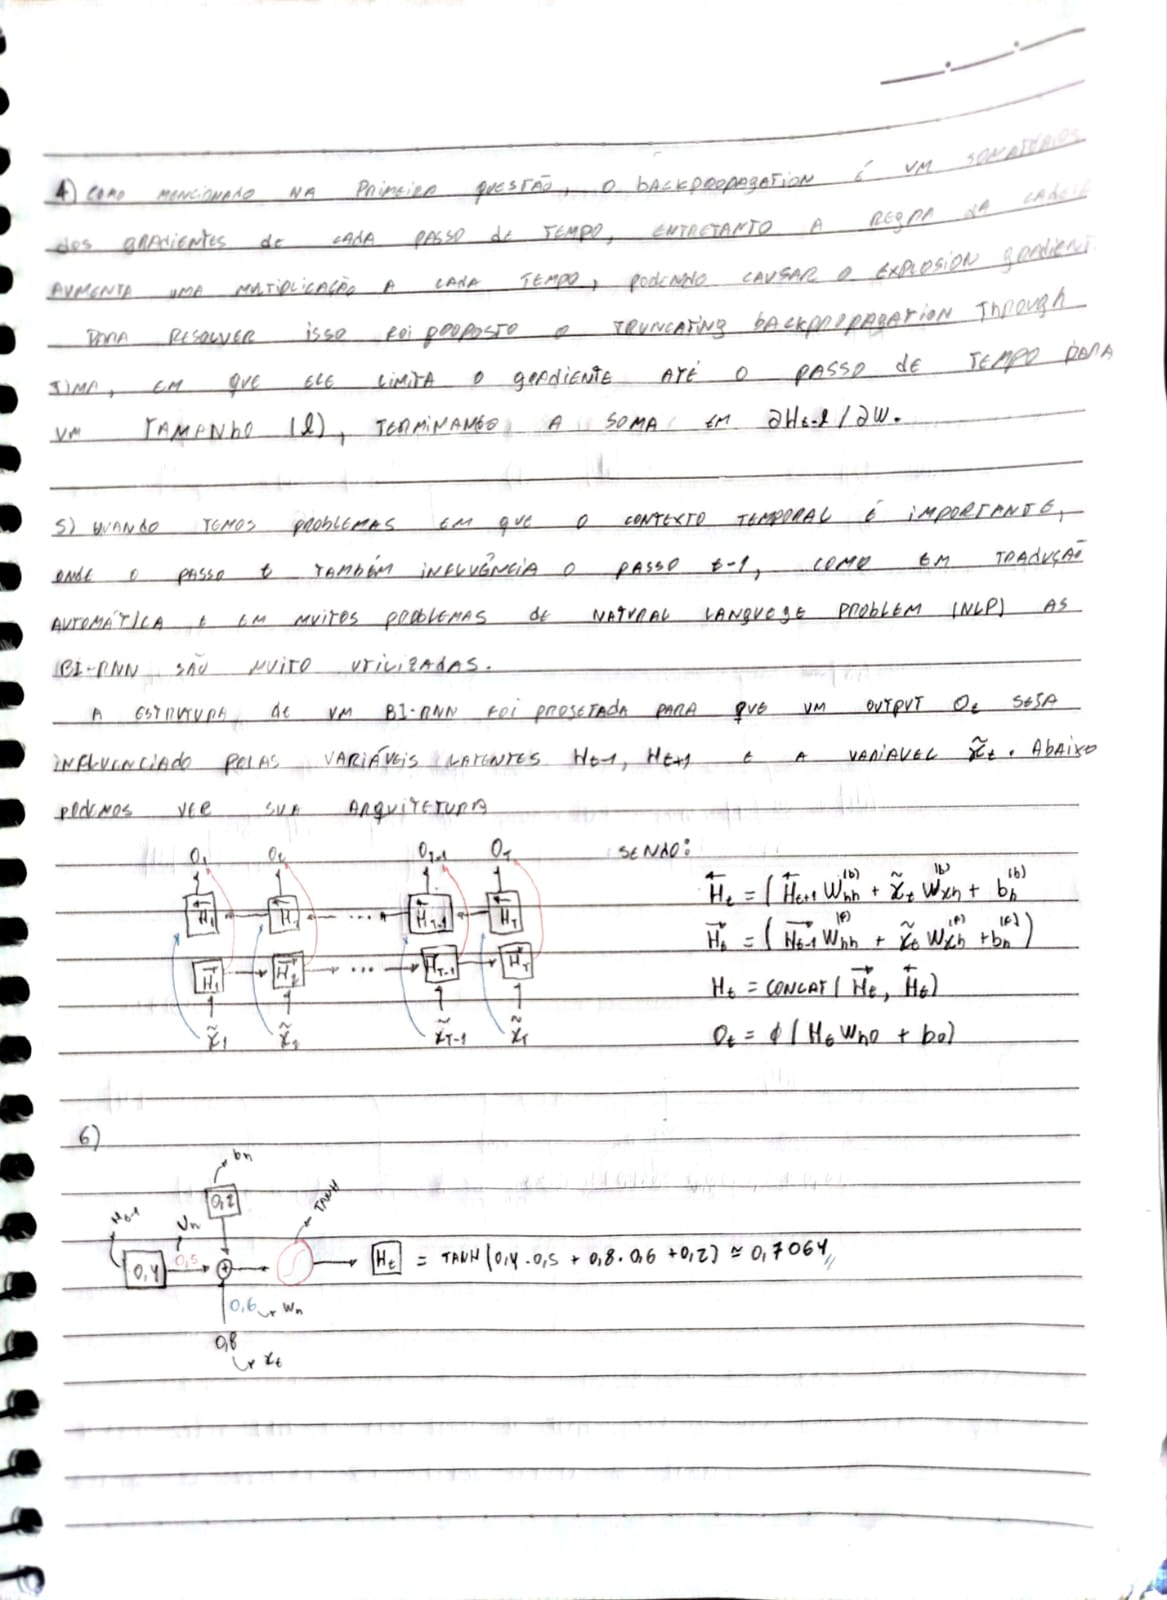 4) COMO MENCIONADO NA PRIMEIRA QUESTÃO, O BACKPROPAGATION É UM SOMATÓRIOS
dos GRADIENTES de CADA PASSO de TEMPO, ENTRETANTO A REGRA DA CADEIA
AUMENTA UMA MULTIPLICAÇÃO A CADA TEMPO, PODENDO CAUSAR O EXPLOSION gradient
PARA RESOLVER isso FOI PROPOSTO O TRUNCATING BACKPROPAGATION Through
TIME, EM QUE ELE LIMITA O GRADIENTE ATÉ O PASSO DE TEMPO PARA
UM TAMANHO (l), TERMINANDO A SOMA EM ∂Ht-l/∂W.
5) QUANDO TEMOS PROBLEMAS EM QUE O CONTEXTO TEMPORAL É IMPORTANTE,
ONDE O PASSO t TAMBÉM INFLUÊNCIA O PASSO t-1, COMO EM TRADUÇÃO
AUTOMÁTICA E EM MUITOS PROBLEMAS de NATURAL LANGUEGE PROBLEM (NLP) AS
BI-RNN SÃO MUITO UTILIZADAS.
A ESTRUTURA de UM BI-RNN FOI PROJETADA PARA QUE UM OUTPUT Ot SEJA
INFLUENCIADO PELAS VARIÁVEIS LATENTES Ht-1, Ht+1 E A VARIAVEL x̃t. ABAIXO
PODEMOS VER SUA ARQUITETURA
O1 Ot OT-1 OT SENDO:
H⃖1 H⃖T ... H⃖T-1 H⃖T
H⃗1 H⃗2 ... H⃗T-1 H⃗T
x̃1 x̃2 x̃T-1 x̃T
H⃖t = (H⃖t+1 Whh(b) + x̃t Wxh(b) + bh(b)
H⃗t = (H⃗t-1 Whh(f) + x̃t Wxh(f) + bh(f))
Ht = CONCAT(H⃗t, H⃖t)
Ot = φ(Ht Who + bo)
6)
bh
0,2
Ht-1 Uh TANH
0,4 0,5 + Ht = TANH(0,4 . 0,5 + 0,8 . 0,6 + 0,2) ≅ 0,7064
0,6 Wh
0,8
xt